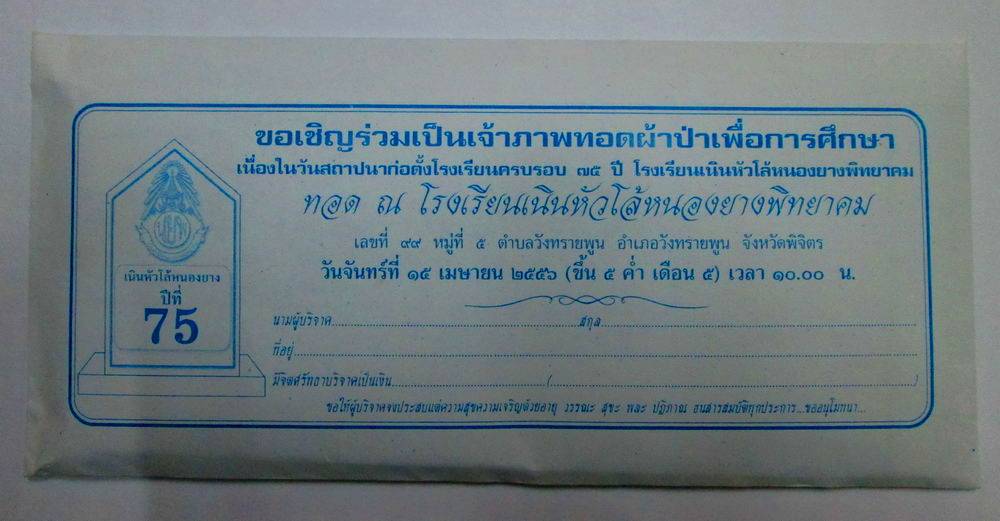 ขอเชิญร่วมเป็นเจ้าภาพทอดผ้าป่าเพื่อการศึกษา
เนื่องในวันสถาปนาก่อตั้งโรงเรียนครบรอบ ๗๕ ปี โรงเรียนเนินหัวโล้หนองยางพิทยาคม
ทอด ณ โรงเรียนเนินหัวโล้หนองยางพิทยาคม
เลขที่ ๙๙ หมู่ที่ ๕ ตำบลวังทรายพูน อำเภอวังทรายพูน จังหวัดพิจิตร
วันจันทร์ที่ ๑๕ เมษายน ๒๕๕๖ (ขึ้น ๕ ค่ำ เดือน ๕) เวลา ๑๐.๐๐ น.
เนินหัวโล้หนองยาง
ปีที่
75
นามผู้บริจาค....................สกุล....................
ที่อยู่....................
มีจิตศรัทธาบริจาคเป็นเงิน....................(....................)
ขอให้ผู้บริจาคจงประสบแต่ความสุขความเจริญด้วยอายุ วรรณะ สุขะ พละ ปฏิภาณ ธนสารสมบัติทุกประการ...ขออนุโมทนา...